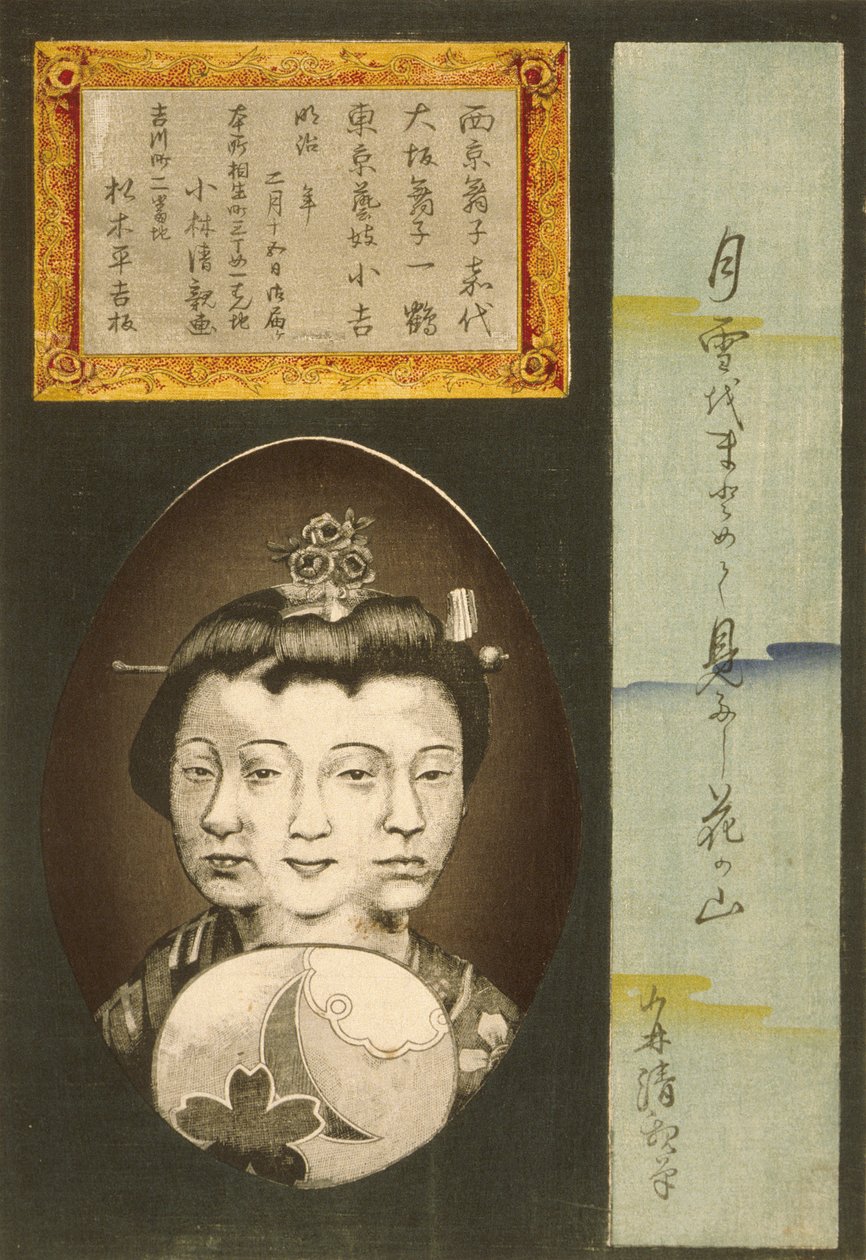 月雪をまとめて見たし花の山
小林清親筆
西京舞子嘉代
大坂舞子一鶴
東京藝妓小吉
明治 年
二月十五日御届ケ
本所相生町三丁め一はん地
小林清親画
吉川町二番地
松木平吉板